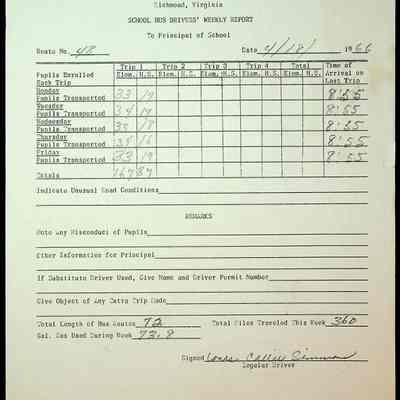 Richmond, Virginia
SCHOOL BUS DRIVERS' WEEKLY REPORT
To Principal of School
Route No. 48 Date 4/18/ 1966
Trip 1 Trip 2 Trip 3 Trip 4 Total Time of Arrival on Last Trip
Pupils Enrolled Each Trip Elem. H.S. Elem. H.S. Elem. H.S. Elem. H.S. Elem. H.S.
Monday
Pupils Transported 33 19 8:55
Tuesday
Pupils Transported 34 19 8:55
Wednesday
Pupils Transported 18 8:55
Thursday
Pupils Transported 34 16 8:55
Friday
Pupils Transported 33 19 8:55
Totals 167 87
Indicate Unusual Road Conditions
REMARKS
Note Any Misconduct of Pupils
Other Information for Principal
If Substitute Driver Used, Give Name and Driver Permit Number
Give Object of Any Extra Trip Made
Total Length of Bus Routes 72 Total Miles Traveled This Week 360
Gal. Gas Used During Week 73.8
Signed Callie
Regular Driver